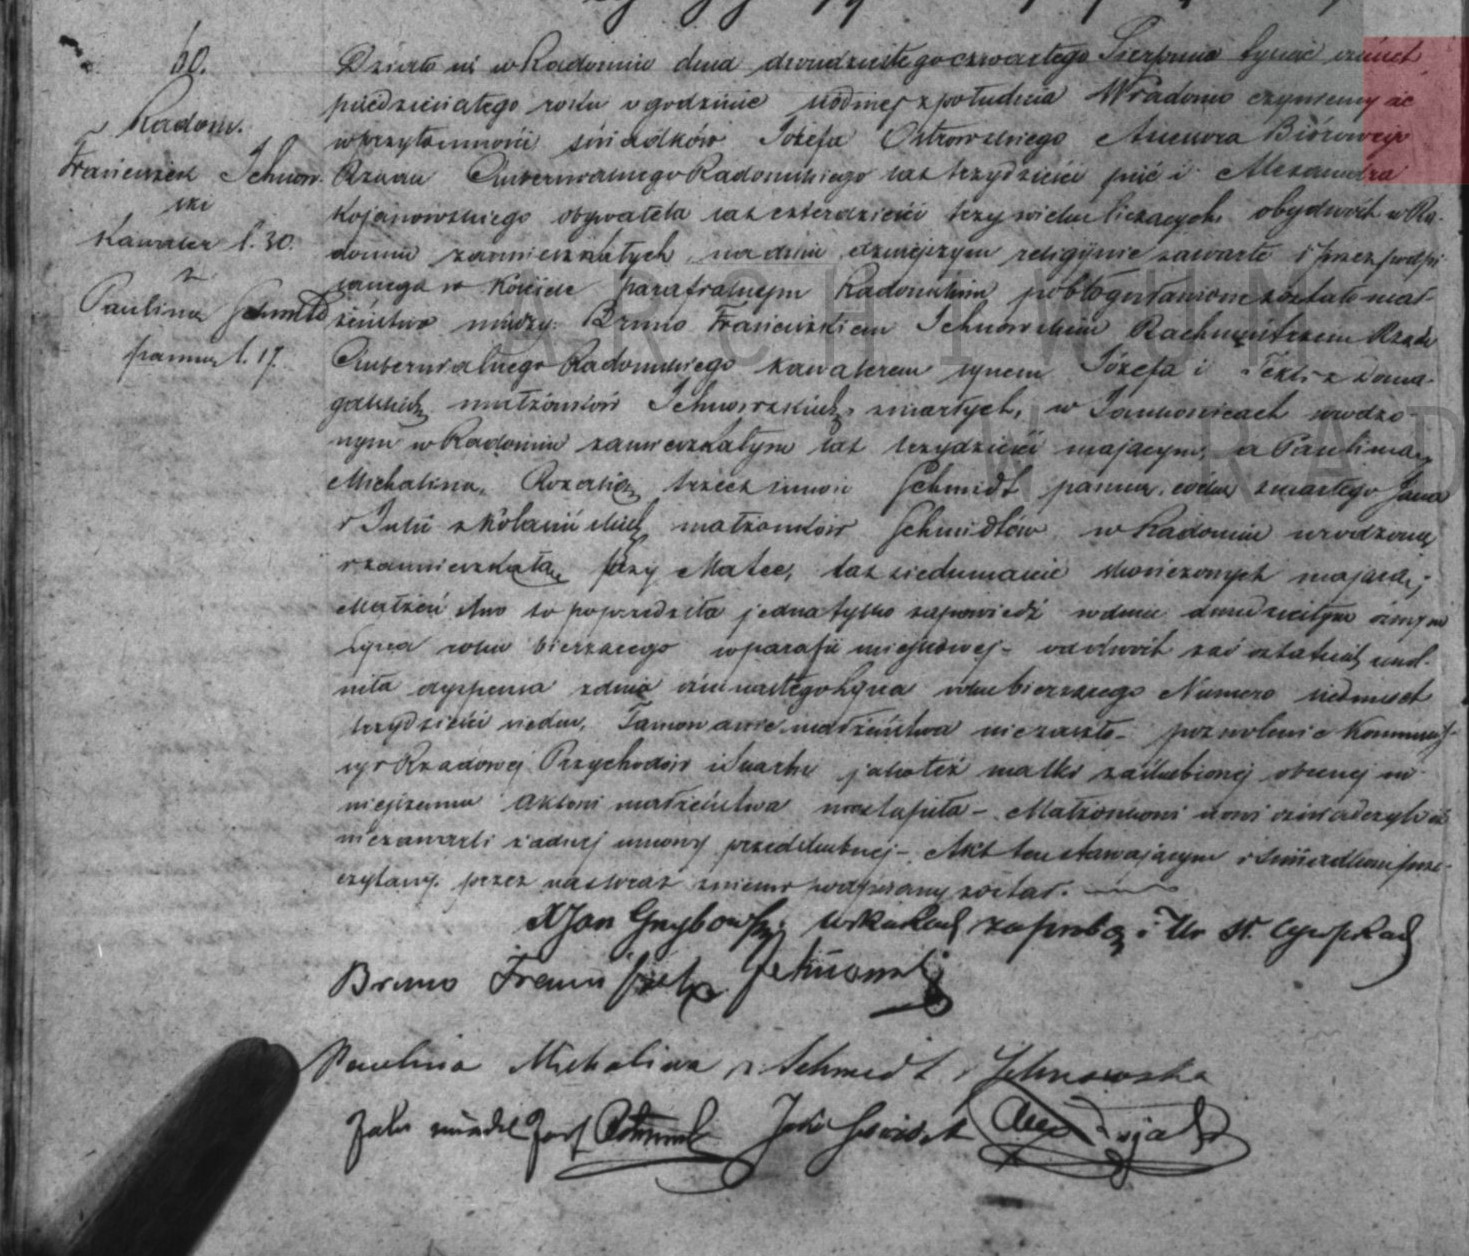 60.
Radom.
Franciszek Jchnow-
ski
Kawaler l. 30.
z
Paulina Schmidt
panna l. 17.
Działo się w Radomiu dnia dwudziestego czwartego Sierpnia tysiąc ośmset
pięćdziesiątego roku o godzinie siódmej z południa Wiadomo czyniemy że
w przytomności świadków Józefa Ostrowskiego Assesora Biórowego
Rządu Gubernialnego Radomskiego lat trzydzieści pięć i Alexandra
Kojanowskiego obywatela lat czterdzieści trzy wieku liczących obydwóch w Ra-
domiu zamieszkałych, na dniu dzisiejszym religijnie zawarte i przez podpi
sanego w Kościele parafialnym Radomskim pobłogosławione zostało mał-
żeństwo między Bruno Franciszkiem Jchnowskim Rachmistrzem Rządu
Gubernialnego Radomskiego kawalerem synem Józefa i Tekli z Doma-
galskich małżonków Jchnowskich zmarłych, w Jankowicach urodzo
nym w Radomiu zamieszkałym lat trzydzieści mającym, a Pauliną
Michaliną, Rozalią trzech imion Schmidt panną, córką zmarłego Jana
i Julii małżonków Schmidtów, w Radomiu urodzoną
i zamieszkałą przy Matce, lat siedmnaście skończonych mającą;
Małżeństwo to poprzedziła jedna tylko zapowiedź w dniu dwudziestym ósmym
Lipca roku bieżącego w parafii miejscowej – od dwóch zaś ostatnich uwol-
niła dyspensa z dnia ośmnastego Lipca roku bieżącego Numero siedmset
trzydzieści siedm, Tamowanie małżeństwa nie zaszło – pozwolenie Kommis-
syi Rządowej Przychodów i Skarbu jakoteż matki zaślubionej obecnej ni-
niejszemu Aktowi małżeństwa nastąpiło – Małżonkowie nowi oświadczyli iż
niezawarli żadnej umowy przedślubnej – Akt ten stawającym i świadkom prze-
czytany, przez nas wraz z niemi podpisany został.
XJan Grybowski
Bruno Franciszek Jchnowski
Paulina Michalina z Schmidt Jchnowska
Jako świadek Józef Ostrowski